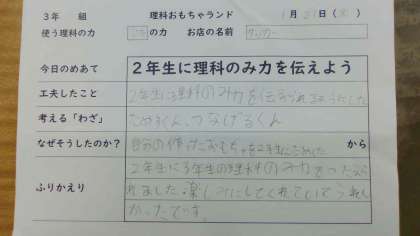 3年　組　理科おもちゃランド　1月21日(　)
使う理科の力　の力　お店の名前
今日のめあて　2年生に理科のみ力を伝えよう
工夫したこと　2年生に理科のみ力を伝
考える「わざ」　くん、つなげるくん
なぜそうしたのか？　自分の作ったおもちゃを2年生に　から
ふりかえり　2年生に3年生の理科のみ力をつたえら
れました。楽しみにしてくれていてうれし
かったです。